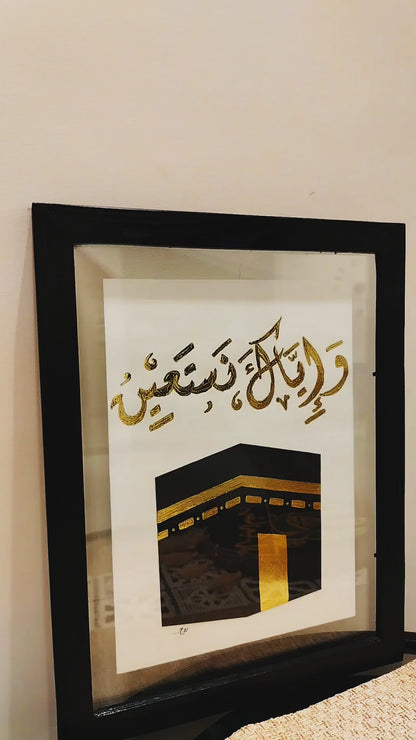 وَإِيَّاكَ نَسْتَعِيْنُ